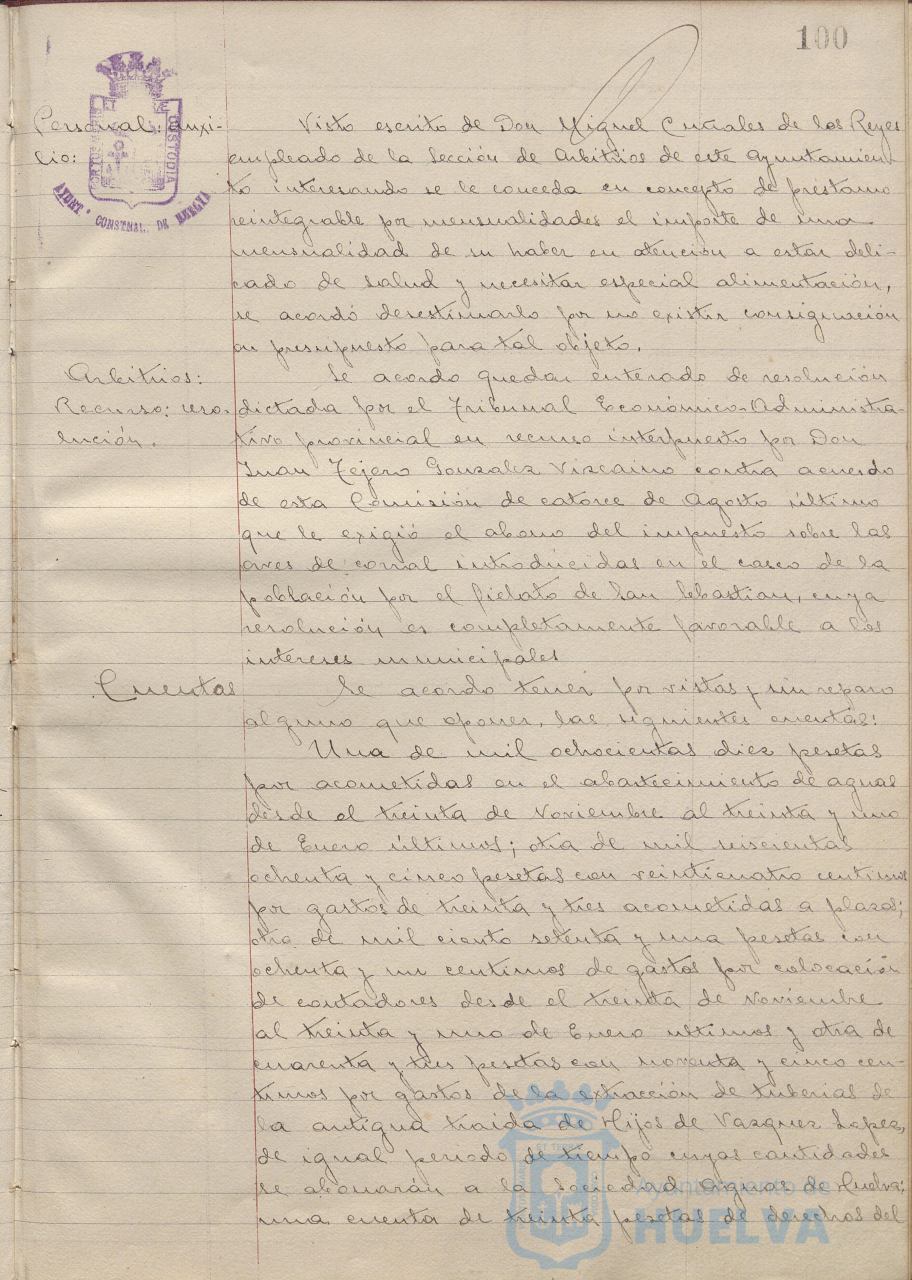 100
Personal: Auxi-
lio:
PORTUS MARIS ET TERRE CUSTODIA
AYUNT.º CONSTNAL. DE HUELVA
Visto escrito de Don Miguel Cruzales de los Reyes
empleado de la Sección de Arbitrios de este Ayuntamien-
to interesando se le conceda en concepto de préstamo
reintegrable por mensualidades el importe de una
mensualidad de su haber en atención a estar deli-
cado de salud y necesitar especial alimentación,
se acordó desestimarlo por no existir consignación
en presupuesto para tal objeto.
Arbitrios:
Recurso: reso-
lución.
Se acordo quedar enterado de resolución
dictada por el Tribunal Económico-Administra-
tivo provincial en recurso interpuesto por Don
Juan Tejero Gonzalez Vizcaino contra acuerdo
de esta Comisión de catorce de Agosto último
que le exigió el abono del impuesto sobre las
aves de corral introducidas en el casco de la
población por el fielato de San Sebastian, cuya
resolución es completamente favorable a los
intereses municipales
Cuentas
Se acordo tener por vistas y sin reparo
alguno que oponer, las siguientes cuentas:
Una de mil ochocientas diez pesetas
por acometidas en el abastecimiento de aguas
desde el treinta de Noviembre al treinta y uno
de Enero últimos; otra de mil seiscientas
ochenta y cinco pesetas con veinticuatro centimos
por gastos de treinta y tres acometidas a plazos;
otra de mil ciento setenta y una pesetas con
ochenta y un centimos de gastos por colocación
de contadores desde el treinta de Noviembre
al treinta y uno de Enero ultimos y otra de
cuarenta y tres pesetas con noventa y cinco cen-
timos por gastos de la extracción de tuberias de
la antigua traida de Hijos de Vazquez Lopez,
de igual periodo de tiempo cuyas cantidades
se abonarán a la Sociedad Aguas de Huelva;
una cuenta de treinta pesetas de derechos del
Ayuntamiento de
HUELVA